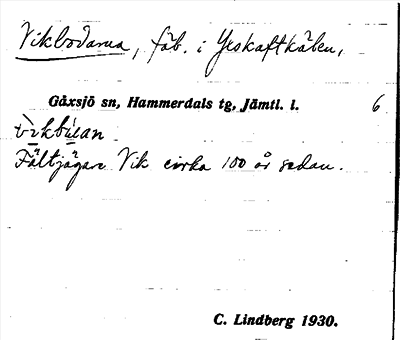 Vikbodarna, fäb. i Yeskaftkälen,
Gåxsjö sn, Hammerdals tg, Jämtl. l. 6
Fältjägare Vik cirka 100 år sedan.
C. Lindberg 1930.